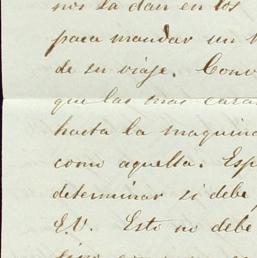 nos la dan en los
para mandar un
de su viaje. Conv
que las mas casa
hasta la maquina
como aquella. Esp
determinar si debe
E.V. Esto no debe